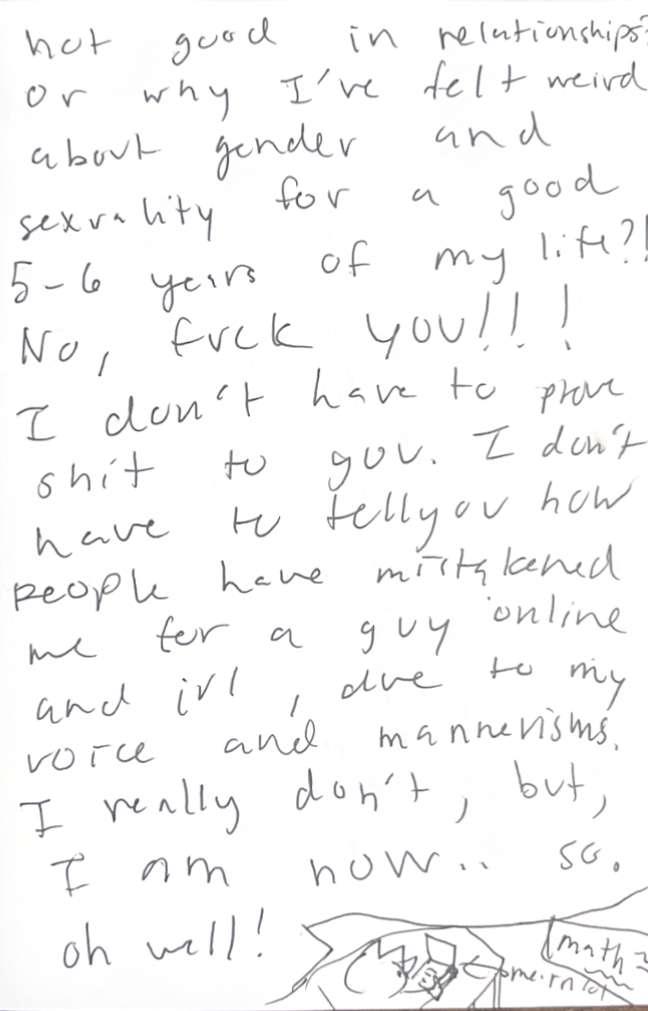 not good in relationships?
or why I've felt weird
about gender and
sexuality for a good
5-6 years of my life?!
No, fuck you!!!
I don't have to prove
shit to you. I don't
have to tell you how
people have mistakened
me for a guy online
and irl, due to my
voice and mannerisms.
I really don't, but,
I am now.. so.
oh well!
math